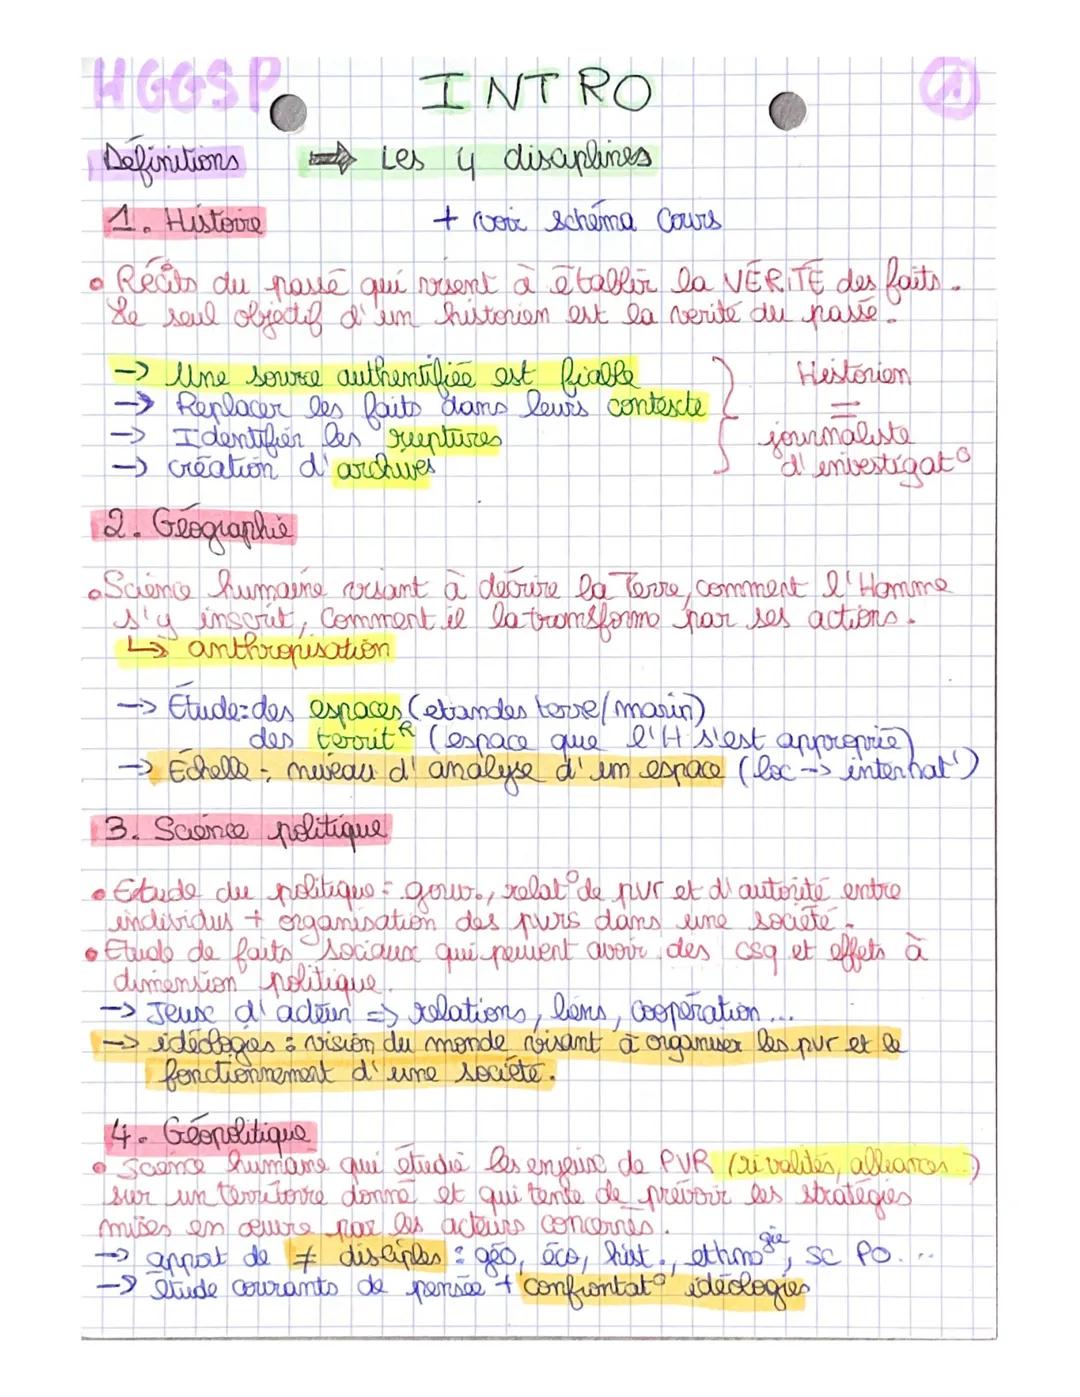 HGGSP INTRO 1
Définitions ⇒ Les 4 disciplines
1. Histoire + voir schéma Cours
• Récits du passé qui visent à établir la VÉRITÉ des faits.
Le seul objectif d'un historien est la verité du passé.
-> Une source authentifiée est fiable
-> Replacer les faits dans leurs contexte
-> Identifier les ruptures
-> création d'archives
Historien
=
journaliste
d'investigat°
2. Géographie
• Science humaine visant à décrire la Terre, comment l'Homme
s'y inscrit, Comment il la transforme par ses actions.
↳ anthropisation
-> Étude: des espaces (etandes terre/marin)
des territR (espace que l'H s'est approprié)
-> Échelle = niveau d'analyse d'un espace (loc -> internat')
3. Science politique
• Etude du politique = gouv., relat° de pvr et d'autorité entre
individus + organisation des pvrs dans une société.
• Etude de faits sociaux qui peuvent avoir des csq et effets à
dimension politique.
-> Jeux d'acteur => relations, liens, coopération...
-> idéologies : vision du monde visant à organiser les pvr et le
fonctionnement d'une société.
4. Géopolitique
• Science humaine qui étudie les enjeux de PVR (rivalités, alliances...)
sur un territoire donné et qui tente de prévoir les stratégies
mises en œuvre par les acteurs concernés.
-> apport de ≠ disciples : géo, éco, hist., ethnogie, SC PO...
-> étude courants de pensée + confrontat° idéologies